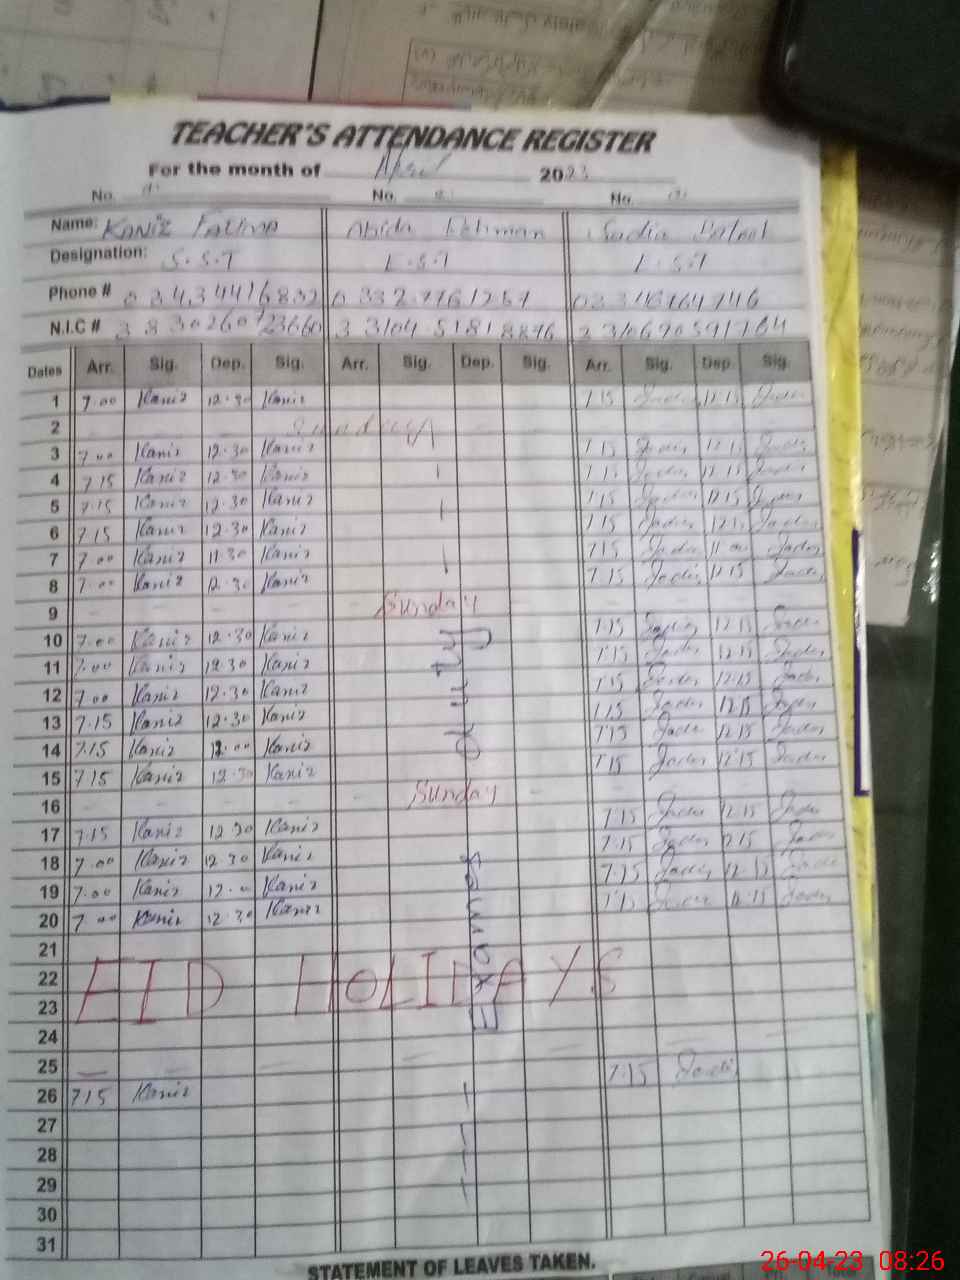 TEACHER'S ATTENDANCE REGISTER
For the month of April 2023
No. No. No.
Name: Kaniz Fatima Abida Rehman Sadia Batool
Designation: S.S.T E.S.T E.S.T
Phone # 0 3 4 3 4 4 1 6 8 3 2 0 3 3 2 7 7 6 1 2 5 7 0 3 3 4 6 7 6 4 7 4 6
N.I.C #
Dates Arr. Sig. Dep. Sig. Arr. Sig. Dep. Sig. Arr. Sig. Dep. Sig.
1 7.00 Kaniz 12.30 Kaniz 7.15 Sadia 12.15 Sadia
2 Sunday
3 7.00 Kaniz 12.30 Kaniz 7.15 Sadia 12.15 Sadia
4 7.15 Kaniz 12.30 Kaniz 7.15 Sadia 12.15 Sadia
5 7.15 Kaniz 12.30 Kaniz 7.15 Sadia 12.15 Sadia
6 7.15 Kaniz 12.30 Kaniz 7.15 Sadia 12.15 Sadia
7 7.00 Kaniz 11.30 Kaniz 7.15 Sadia 11.00 Sadia
8 7.00 Kaniz 12.30 Kaniz 7.15 Sadia 12.15 Sadia
9 Sunday
10 7.00 Kaniz 12.30 Kaniz 7.15 Sadia 12.15 Sadia
11 7.00 Kaniz 12.30 Kaniz 7.15 Sadia 12.15 Sadia
12 7.00 Kaniz 12.30 Kaniz 7.15 Sadia 12.15 Sadia
13 7.15 Kaniz 12.30 Kaniz 7.15 Sadia 12.15 Sadia
14 7.15 Kaniz 12.00 Kaniz 7.15 Sadia 12.15 Sadia
15 7.15 Kaniz 12.30 Kaniz 7.15 Sadia 12.15 Sadia
16 Sunday
17 7.15 Kaniz 12.30 Kaniz 7.15 Sadia 12.15 Sadia
18 7.00 Kaniz 12.30 Kaniz 7.15 Sadia 12.15 Sadia
19 7.00 Kaniz 12.00 Kaniz 7.15 Sadia 12.15 Sadia
20 7.00 Kaniz 12.30 Kaniz 7.15 Sadia 12.15 Sadia
21
22 EID HOLIDAYS
23
24
25
26 7.15 Kaniz 7.15 Sadia
27
28
29
30
31
STATEMENT OF LEAVES TAKEN.
26-04-23 08:26